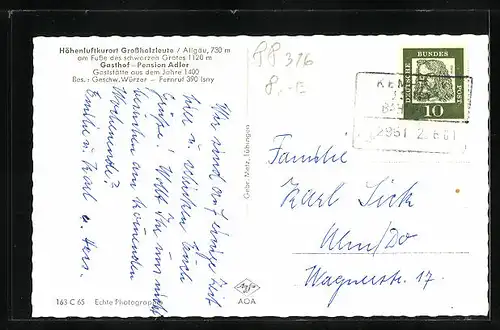 Höhenluftkurort Großholzleute / Allgäu, 730 m
am Fuße des schwarzen Grates 1120 m
Gasthof - Pension Adler
Gaststätte aus dem Jahre 1400
Bes.: Geschw. Würzer - Fernruf 390 Isny
Wir sind auf einige Zeit
hier u. schicken Euch
Grüße! Wollt Ihr uns nicht
besuchen am kommenden
Wochenende?
Emilie u. Karl
163 C 65 Echte Photograp
Gebr. Metz, Tübingen
Agfa
AOA
PP 376
8,-E
DEUTSCHE
BUNDES
POST
10
KEM
2951 2.6.61
Familie
Karl Sick
Ulm/Do
Wagnerstr. 17.